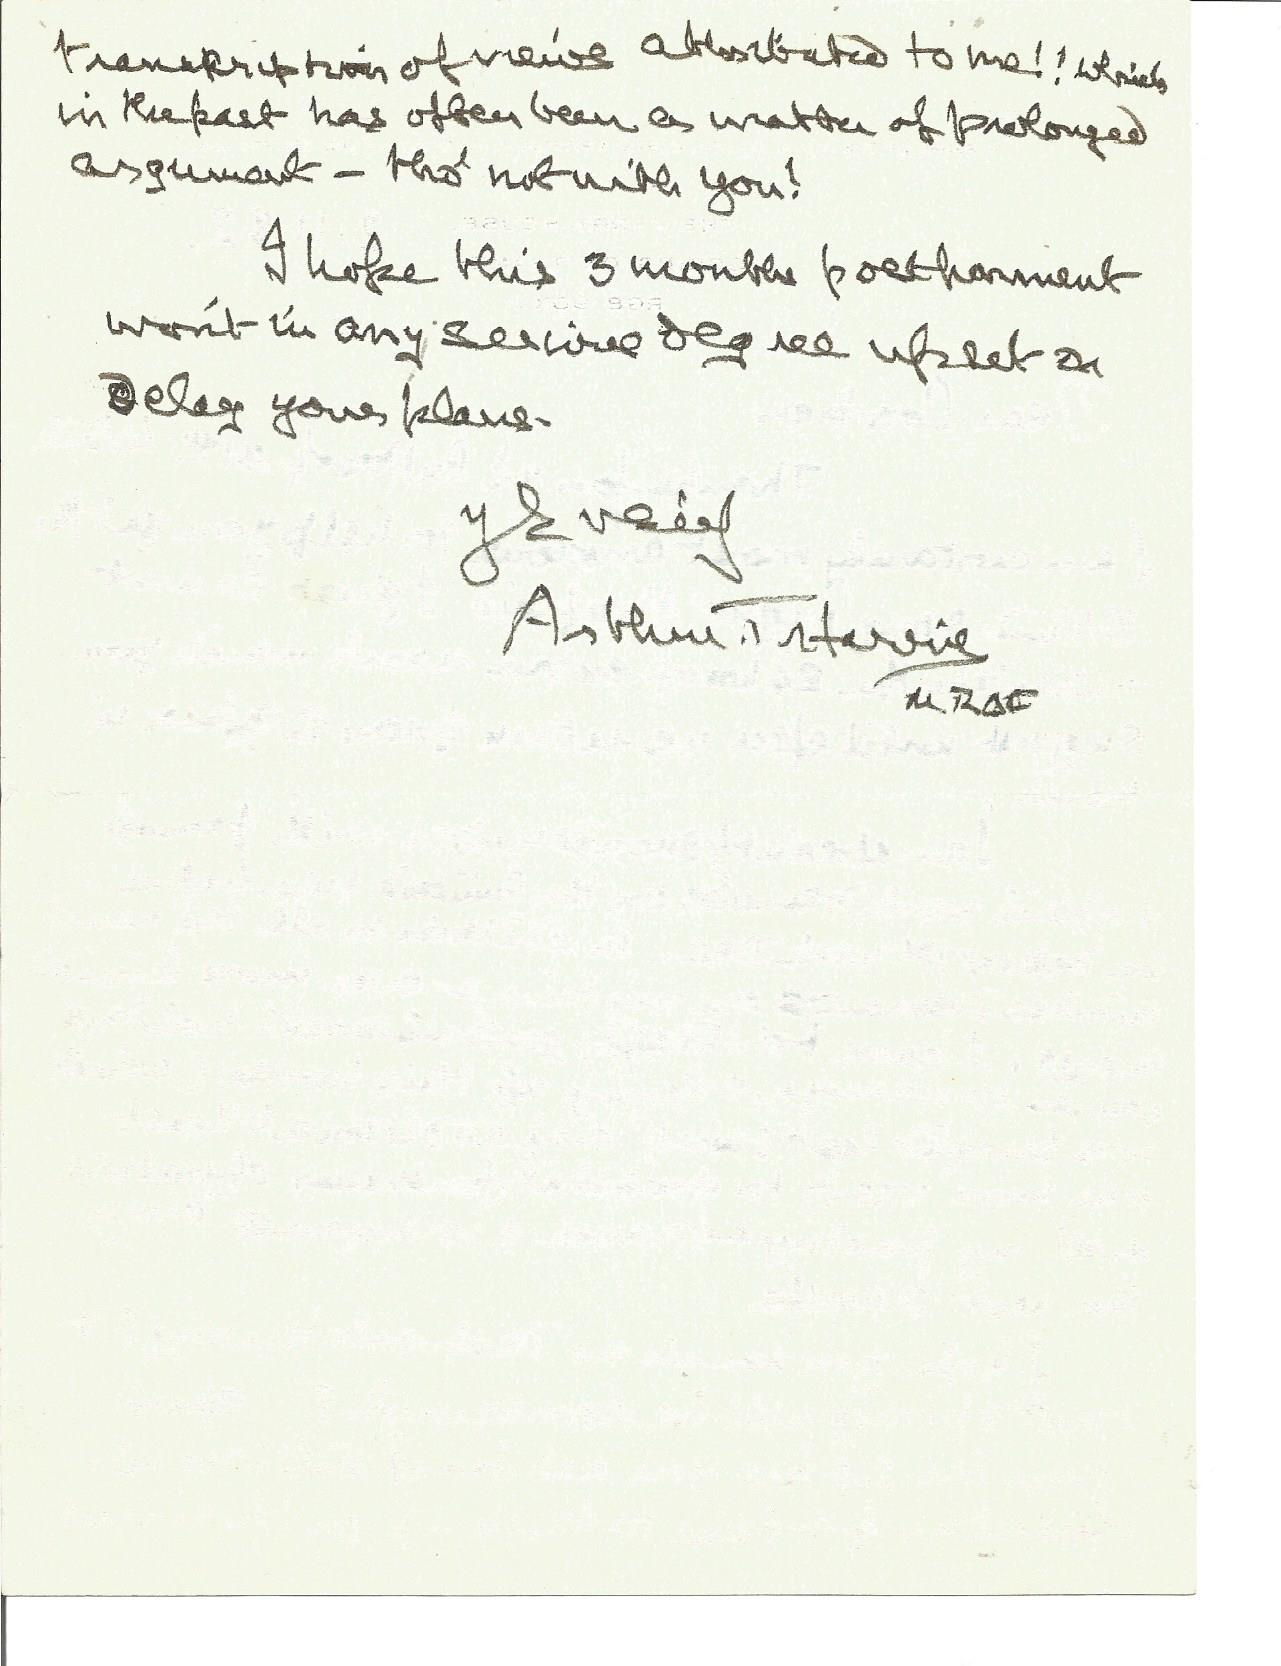 transcription of views attributed to me!! which
in the past has often been a matter of prolonged
argument – tho' not with you!
I hope this 3 months postponement
won't in any serious degree upset or
Delay your plans.
Arthur T Harris
MRAF